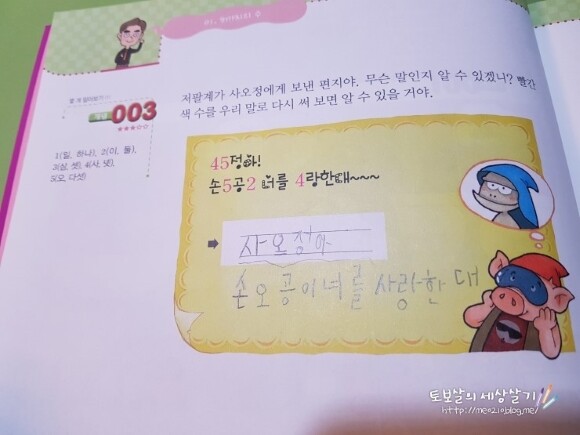 저팔계가 사오정에게 보낸 편지야. 무슨 말인지 알 수 있겠니? 빨간
색 수를 우리 말로 다시 써 보면 알 수 있을 거야.
003
★★★☆☆
1(일, 하나), 2(이, 둘),
3(삼, 셋), 4(사, 넷),
5(오, 다섯)
45정아!
손5공2 너를 4랑한대~~~
사오정아
손오공이너를사랑한대
토보살의세상살기
http://meo210blog.me/